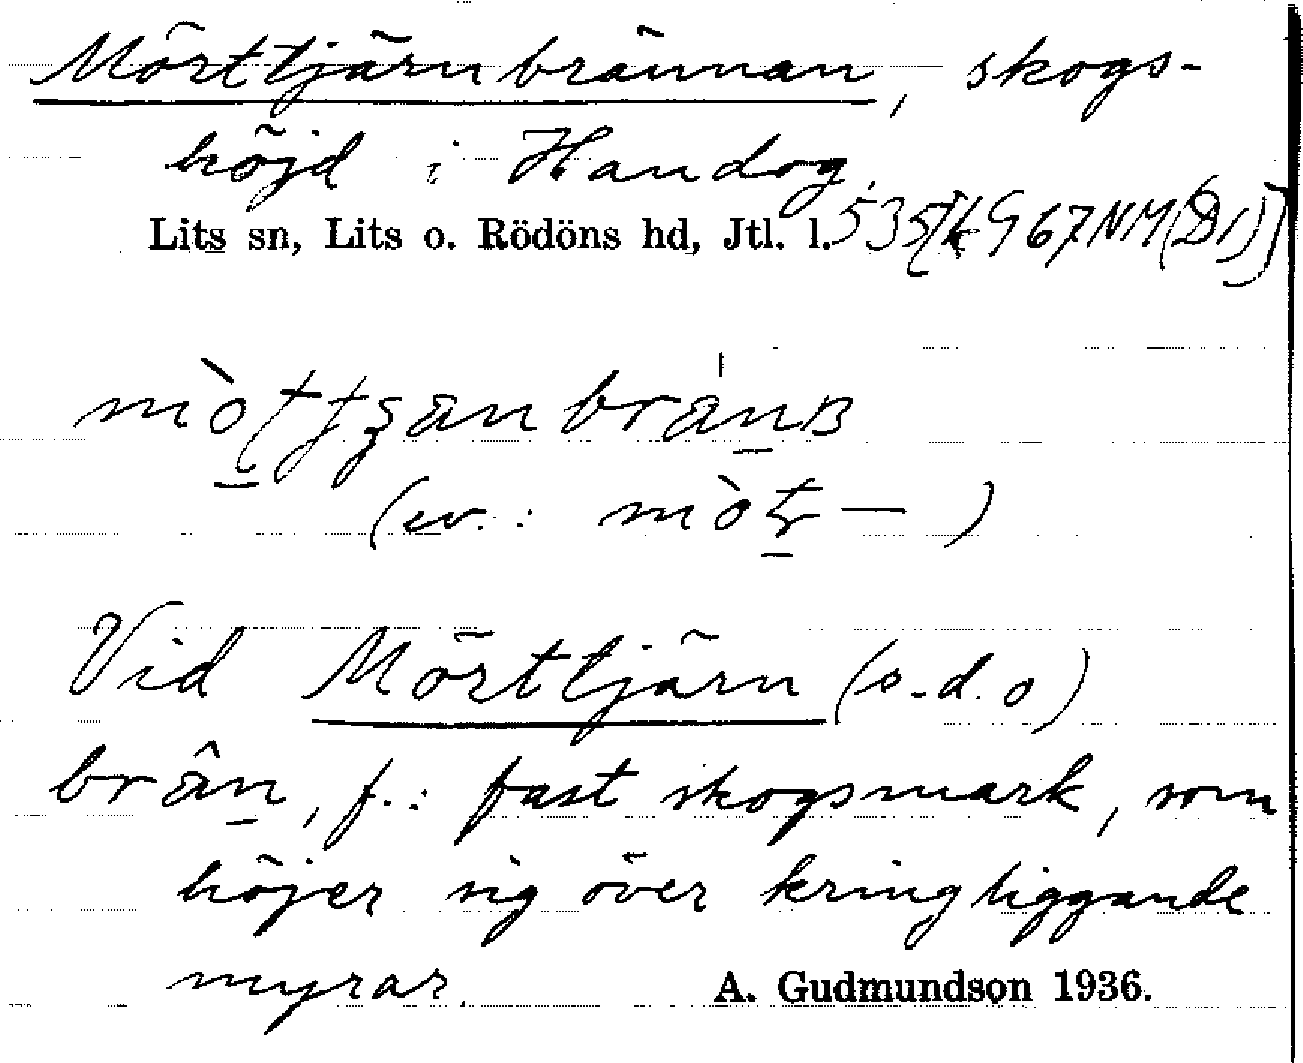 Mörttjärnbrännan, skogs-
höjd i Handog.
Lits sn, Lits o. Rödöns hd, Jtl. l.
(ev.: mòt — )
Vid Mörttjärn (o.d.o)
brân, f.: fast skogsmark, som
höjer sig över kringliggande
myrar.
A. Gudmundson 1936.